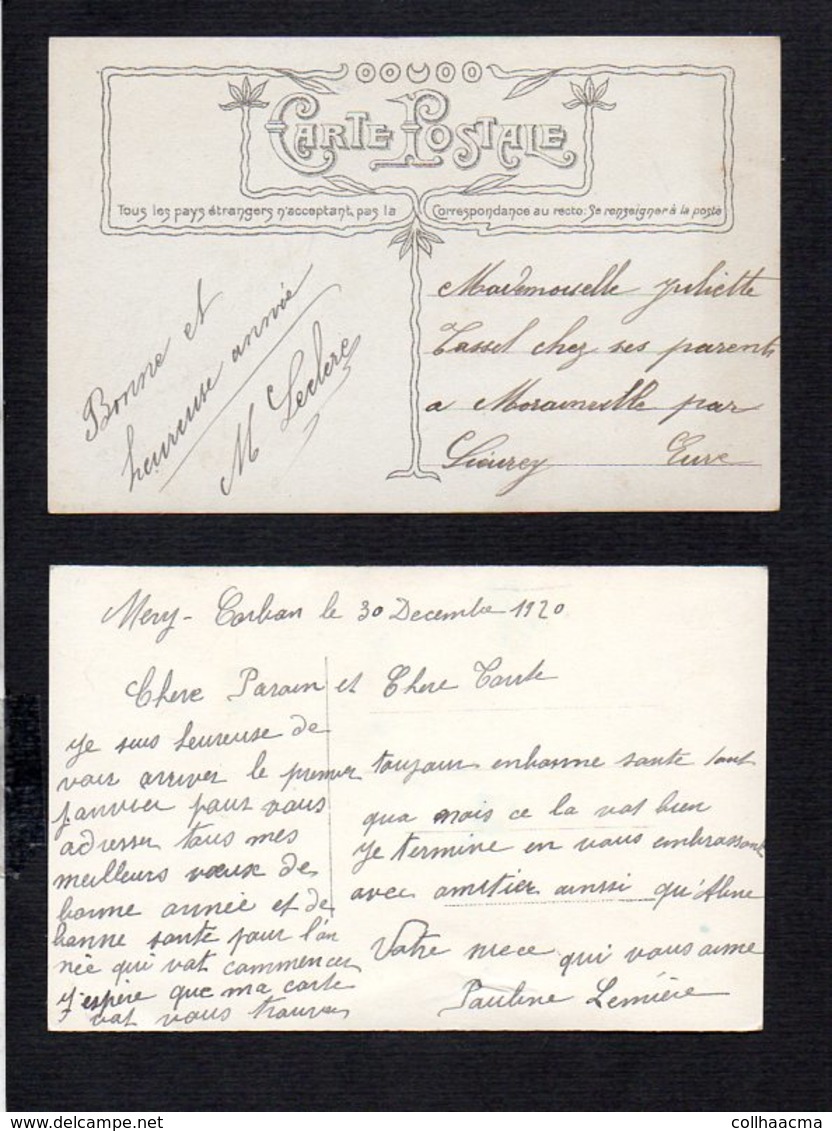 CARTE POSTALE
Tous les pays étrangers n'acceptant pas la Correspondance au recto: Se renseigner à la poste
Bonne et
heureuse année
M Leclerc
Mademoiselle Juliette
Tassel chez ses parents
a Morainville par
Lieurey Eure
Mery-Corbon le 30 Decembre 1920
Chere Parain et Chere Tante
Je suis heureuse de
voir arriver le premier
janvier pour vous
adresser tous mes
meilleurs vœux de
bonne année et de
bonne sante pour l'an
née qui vat commencer
J'espère que ma carte
vat vous trouver
toujour enbonne sante tout
qua mois ce la vat bien
Je termine en vous embrassant
avec amitier ainssi qu'Aline
Votre niece qui vous aime
Pauline Lemière
collhaacma